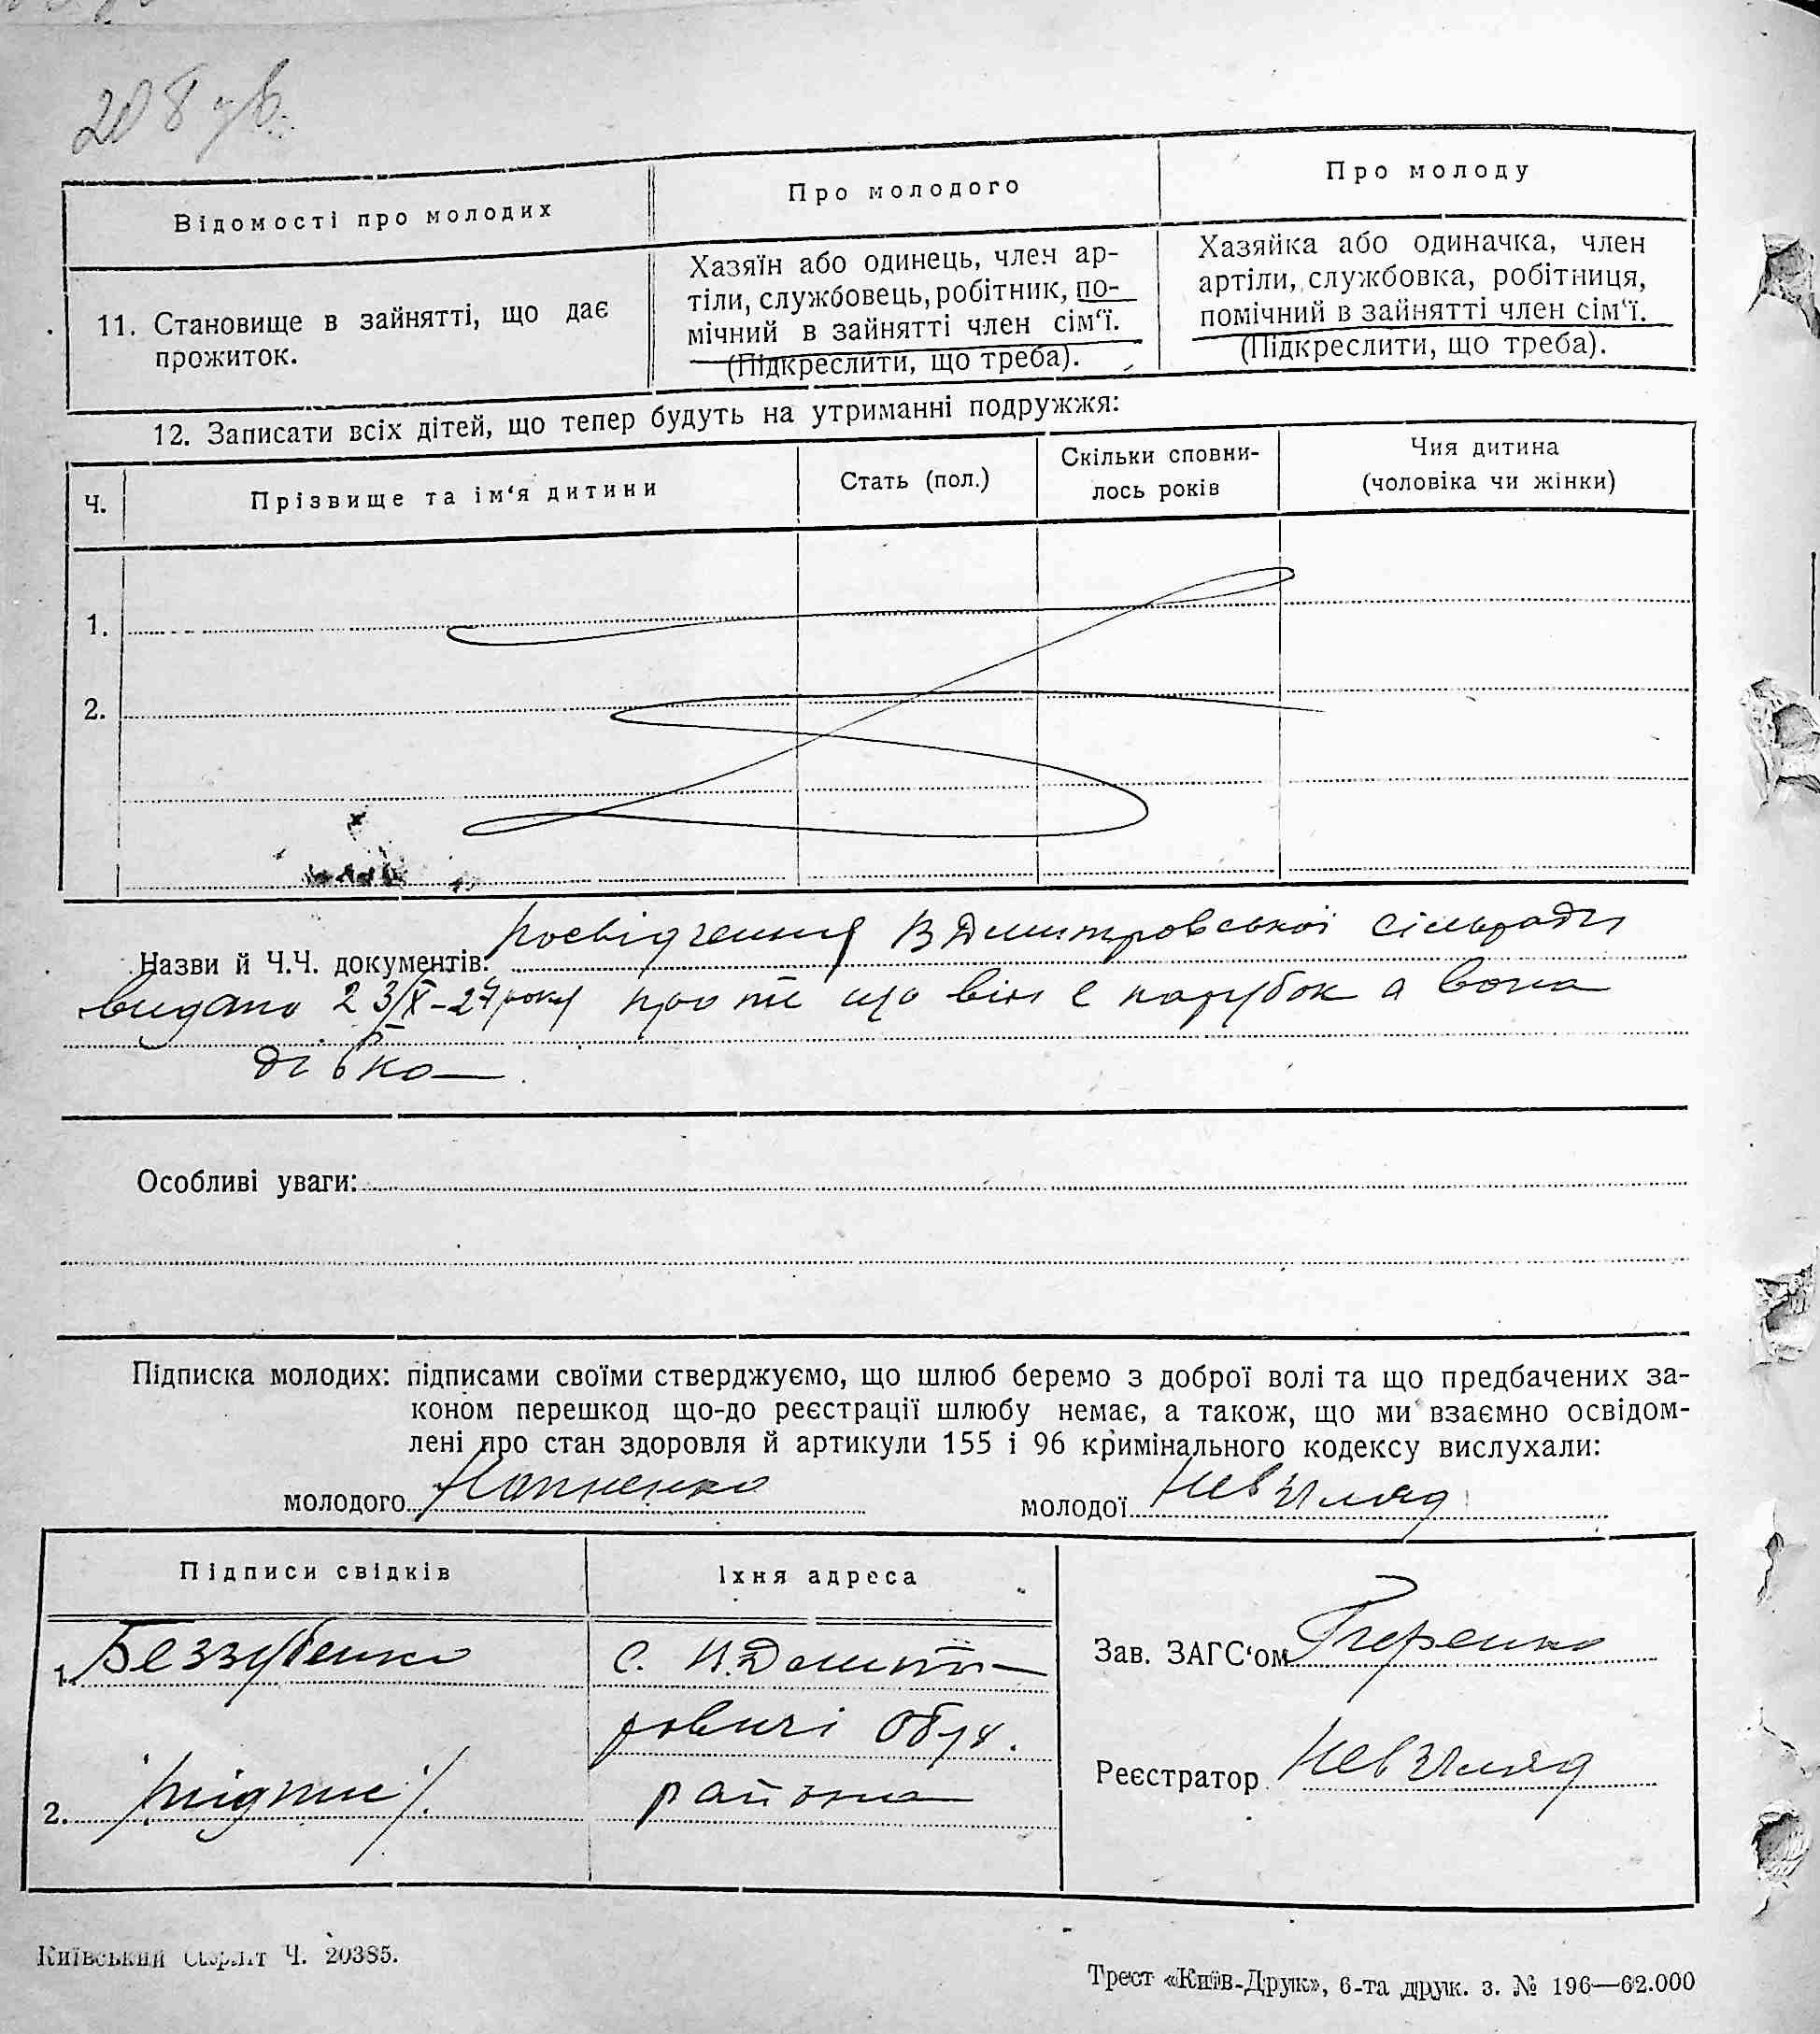 208 зв.
Відомості про молодих
Про молодого
Про молоду
11. Становище в зайнятті, що дає
прожиток.
Хазяїн або одинець, член ар-
тіли, службовець, робітник, по-
мічний в зайнятті член сім‘ї.
(Підкреслити, що треба).
Хазяйка або одиначка, член
артіли, службовка, робітниця,
помічний в зайнятті член сім‘ї.
(Підкреслити, що треба).
12. Записати всіх дітей, що тепер будуть на утриманні подружжя:
Ч.
Прізвище та ім‘я дитини
Стать (пол.)
Скільки сповни-
лось років
Чия дитина
(чоловіка чи жінки)
1.
2.
Назви й Ч.Ч. документів: посвідчення В Дмитровської сільради
видано 23/X-27 року про те що він є парубок а вона
дівка
Особливі уваги:
Підписка молодих: підписами своїми стверджуємо, що шлюб беремо з доброї волі та що предбачених за-
коном перешкод що-до реєстрації шлюбу немає, а також, що ми взаємно освідом-
лені про стан здоровля й артикули 155 і 96 кримінального кодексу вислухали:
молодого
молодої Невзгляд
Підписи свідків
Їхня адреса
1. Беззубенко
с. В. Дмит-
ровичі Обух.
2. /підпис/.
района
Зав. ЗАГС‘ом
Реєстратор Невзгляд
Київський Окрліт Ч. 20385.
Трест «Київ-Друк», 6-та друк. з. № 196—62.000